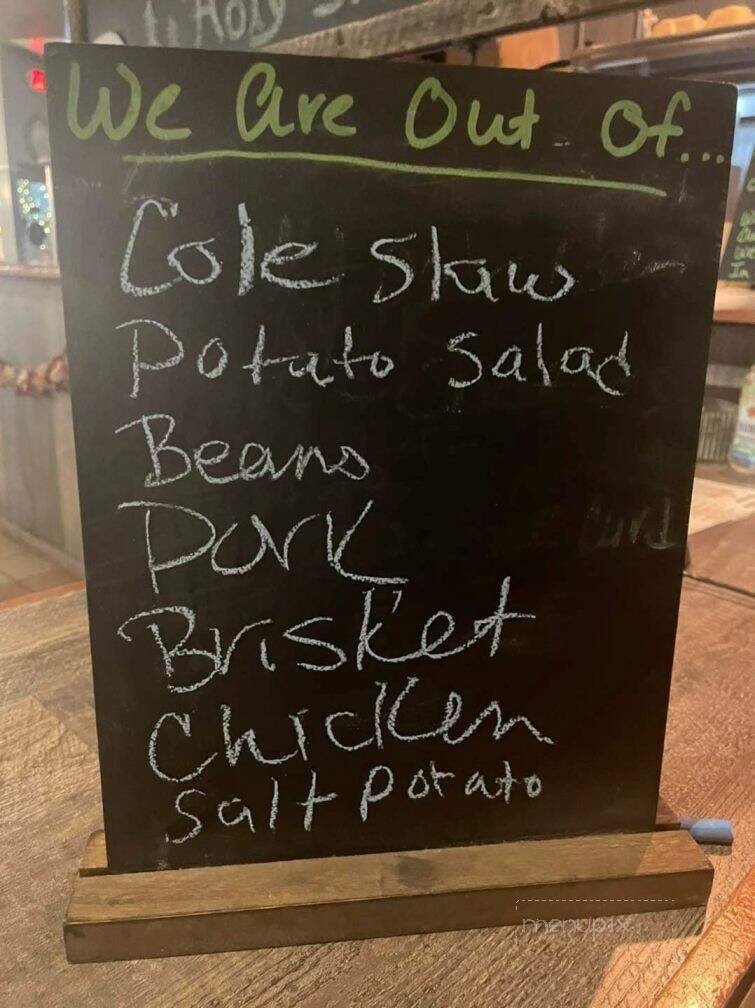 Holy
We Are Out Of...
Cole Slaw
Potato Salad
Beans
Pork
Brisket
Chicken
Salt Potato
menupix